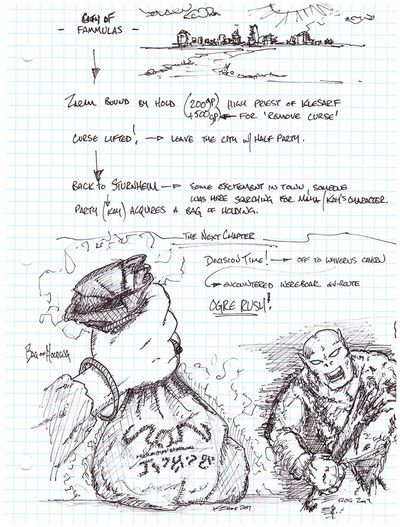 CITY OF
- FAMMULAS -
ZARAM BOUND BY HOLD (200gp HIGH PRIEST OF KLESARF
+500gp) FOR 'REMOVE CURSE'
CURSE LIFTED! → LEAVE THE CITY W/ HALF PARTY.
BACK TO STURNHEIM → SOME EXCITEMENT IN TOWN, SOMEONE
WAS HERE SEARCHING FOR MAHA / KAY'S CHARACTER.
PARTY (KAY) ACQUIRES A BAG OF HOLDING.
THE NEXT CHAPTER
DECISION TIME! → OFF TO WYVERNS CAVERN
ENCOUNTERED WEREBOAR EN-ROUTE
OGRE RUSH!
BAG OF HOLDING